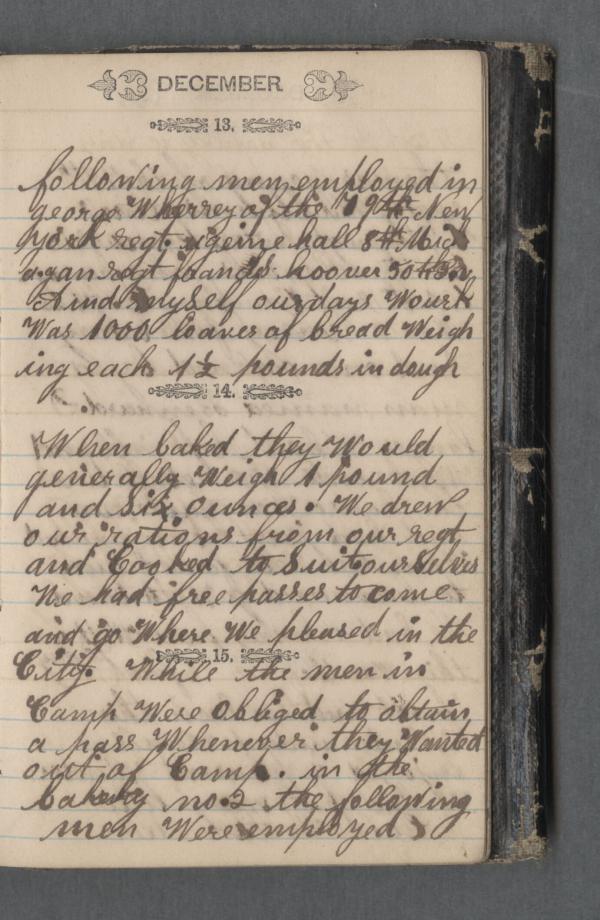 DECEMBER
13.
following men employed in
george Wherrey of the 79th New
York regt. ugeine hall 8th Mich
agan regt francis hoover 50th Pa
And myself our days Wourk
Was 1000 loaves of bread Weigh
ing each 1 1/2 pounds in dough
14.
When baked they Would
generally Weigh 1 pound
and six ounces. We drew
our rations from our regt
and Cooked to suit ourselves
We had free passes to come
and go Where We pleased in the
15.
City. While the men in
Camp Were obliged to obtain
a pass Whenever they Wanted
out of Camp. in the
bakery no. 2 the following
men Were employed